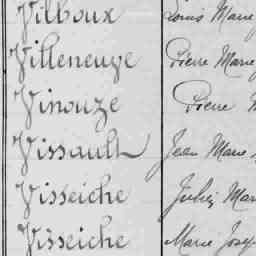 Vilboux Louis Marie
Villeneuve Pierre Marie
Vinouze Pierre
Vissault Jean Marie
Visseiche Julien Mar
Visseiche Marie Josep